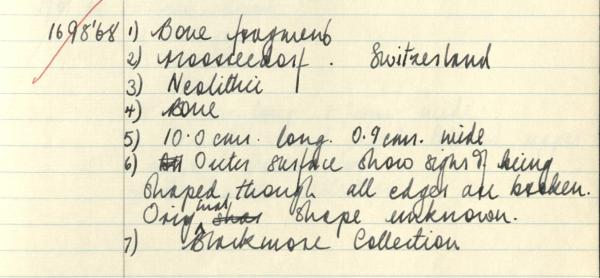 1698'68 1) Bone fragment
2) Moosseedorf. Switzerland
3) Neolithic
4) Bone
5) 10.0 cms. long. 0.9 cms. wide
6) Outer surface show signs of being
shaped, though all edges are broken.
Original shape unknown.
7) Blackmore Collection